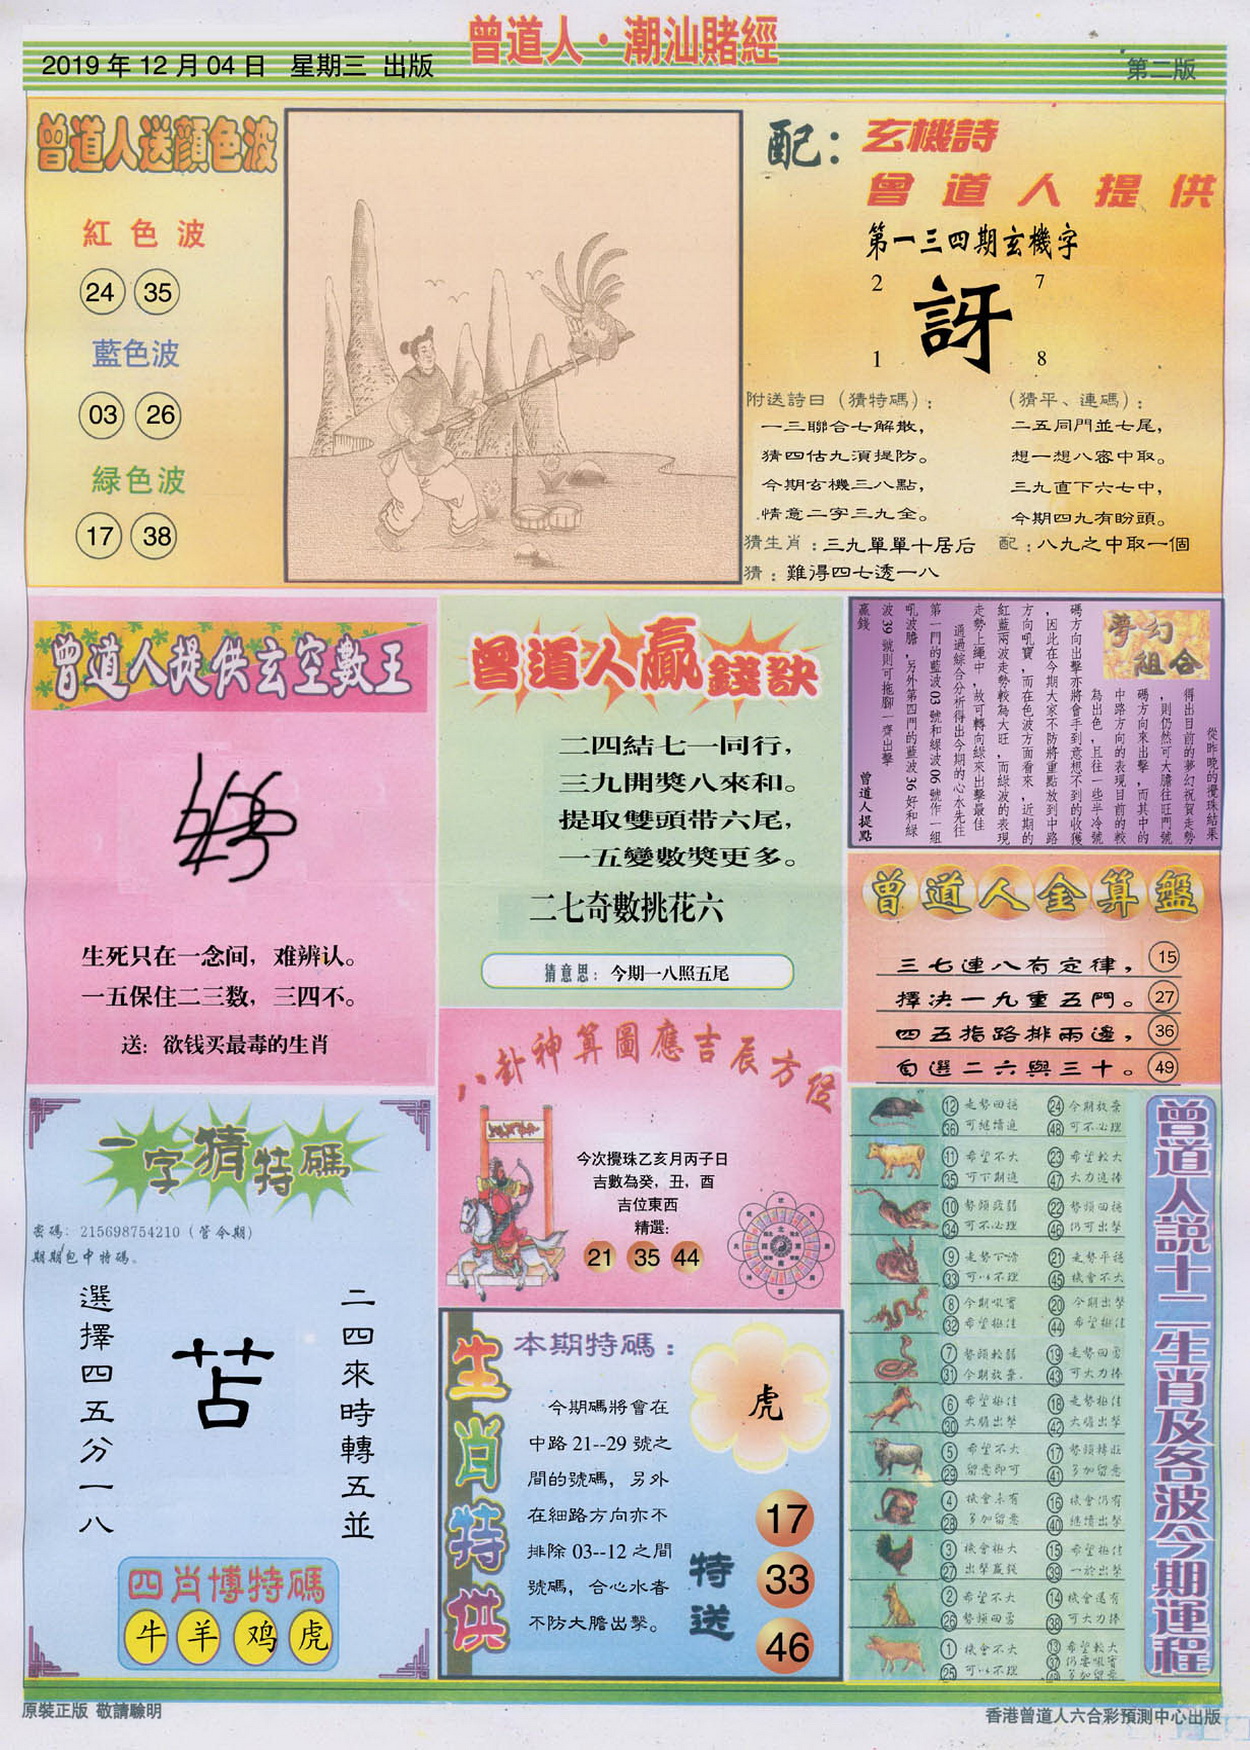 曾道人·潮汕賭經
2019年12月04日 星期三 出版
第二版
曾道人送顏色波
紅色波
24 35
藍色波
03 26
緑色波
17 38
配：玄機詩
曾道人提供
第一三四期玄機字
2 7
訝
1 8
附送詩曰（猜特碼）：
一三聯合七解散，
猜四估九須提防。
今期玄機三八點，
情意二字三九全。
（猜平、連碼）：
二五同門並七尾，
想一想八密中取。
三九直下六七中，
今期四九有盼頭。
猜生肖：三九單單十居后 配：八九之中取一個
猜：難得四七透一八
曾道人提供玄空數王
生死只在一念间，难辨认。
一五保住二三数，三四不。
送：欲钱买最毒的生肖
曾道人贏錢訣
二四結七一同行，
三九開獎八來和。
提取雙頭带六尾，
一五變數獎更多。
二七奇數挑花六
猜意思：今期一八照五尾
夢幻組合
從昨晚的攪珠結果
得出目前的夢幻祝賀走勢
，則仍然可大膽往旺門號
碼方向來出擊，而其中的
中路方向的表現目前的較
為出色，且往一些半冷號
碼方向出擊亦將會手到意想不到的收獲
，因此在今期大家不防將重點放到中路
方向吼寶，而在色波方面看來，近期的
紅藍兩波走勢較為大旺，而綠波的表現
走勢上繩中，故可轉向綠來出擊最佳
通過綜合分析得出今期的心水先往
第一門的藍波03號和綠波06號作一組
吼波膽，另外第四門的藍波36好和綠
波39號則可拖腳一齊出擊
贏錢
曾道人提點
曾道人金算盤
三七連八有定律，15
擇决一九重五門。27
四五指路排兩邊，36
自選二六與三十。49
八卦神算圖應吉辰方位
今次攪珠乙亥月丙子日
吉數為癸，丑，酉
吉位東西
精選：
21 35 44
一字猜特碼
密碼：215698754210（管令期）
期期包中特碼。
二四來時轉五並
苫
選擇四五分一八
四肖博特碼
牛 羊 鸡 虎
生肖特供
本期特碼：
虎
今期碼將會在
中路21--29號之
間的號碼，另外
在細路方向亦不
排除03--12之間
號碼，合心水者
不防大膽出擊。
特送
17
33
46
曾道人説十二生肖及各波今期運程
12 走勢回穩 24 今期放棄
36 可繼續追 48 可不必理
11 希望不大 23 希望較大
35 可下期追 47 大力追捧
10 勢頭疲弱 22 勢頭回穩
34 可不必理 46 仍可出擊
9 走勢下滑 21 走勢平穩
33 可以不理 45 機會不大
8 今期吸寶 20 今期出擊
32 希望極佳 44 希望極佳
7 勢頭較弱 19 走勢回勇
31 今期放棄. 43 可大力捧
6 希望極佳 18 走勢極佳
30 大膽出擊 42 大膽出擊
5 希望不大 17 勢頭轉旺
29 留意即可 41 多加留意
4 機會未有 16 機會仍有
28 多加留意 40 繼續出擊
3 機會極大 15 希望極佳
27 出擊贏錢 39 一於出擊
2 希望不大 14 機會還有
26 勢頭回勇 38 可大力捧
1 機會不大 13 希望較大
25 可以不理 37 仍要吸寶
49 多加留意
原裝正版 敬請驗明
香港曾道人六合彩預測中心出版